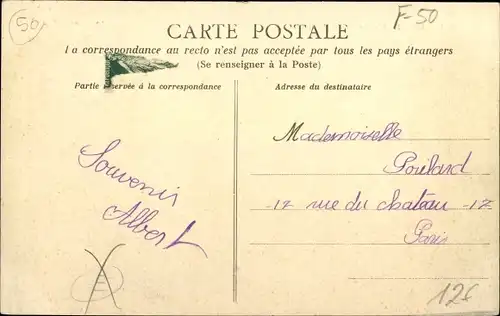 50
F-50
CARTE POSTALE
la correspondance au recto n'est pas acceptée par tous les pays étrangers
(Se renseigner à la Poste)
Partie réservée à la correspondance
Adresse du destinataire
Souvenir
Albert
Mademoiselle
Poulard
-12 rue du chateau -12
Paris
12€